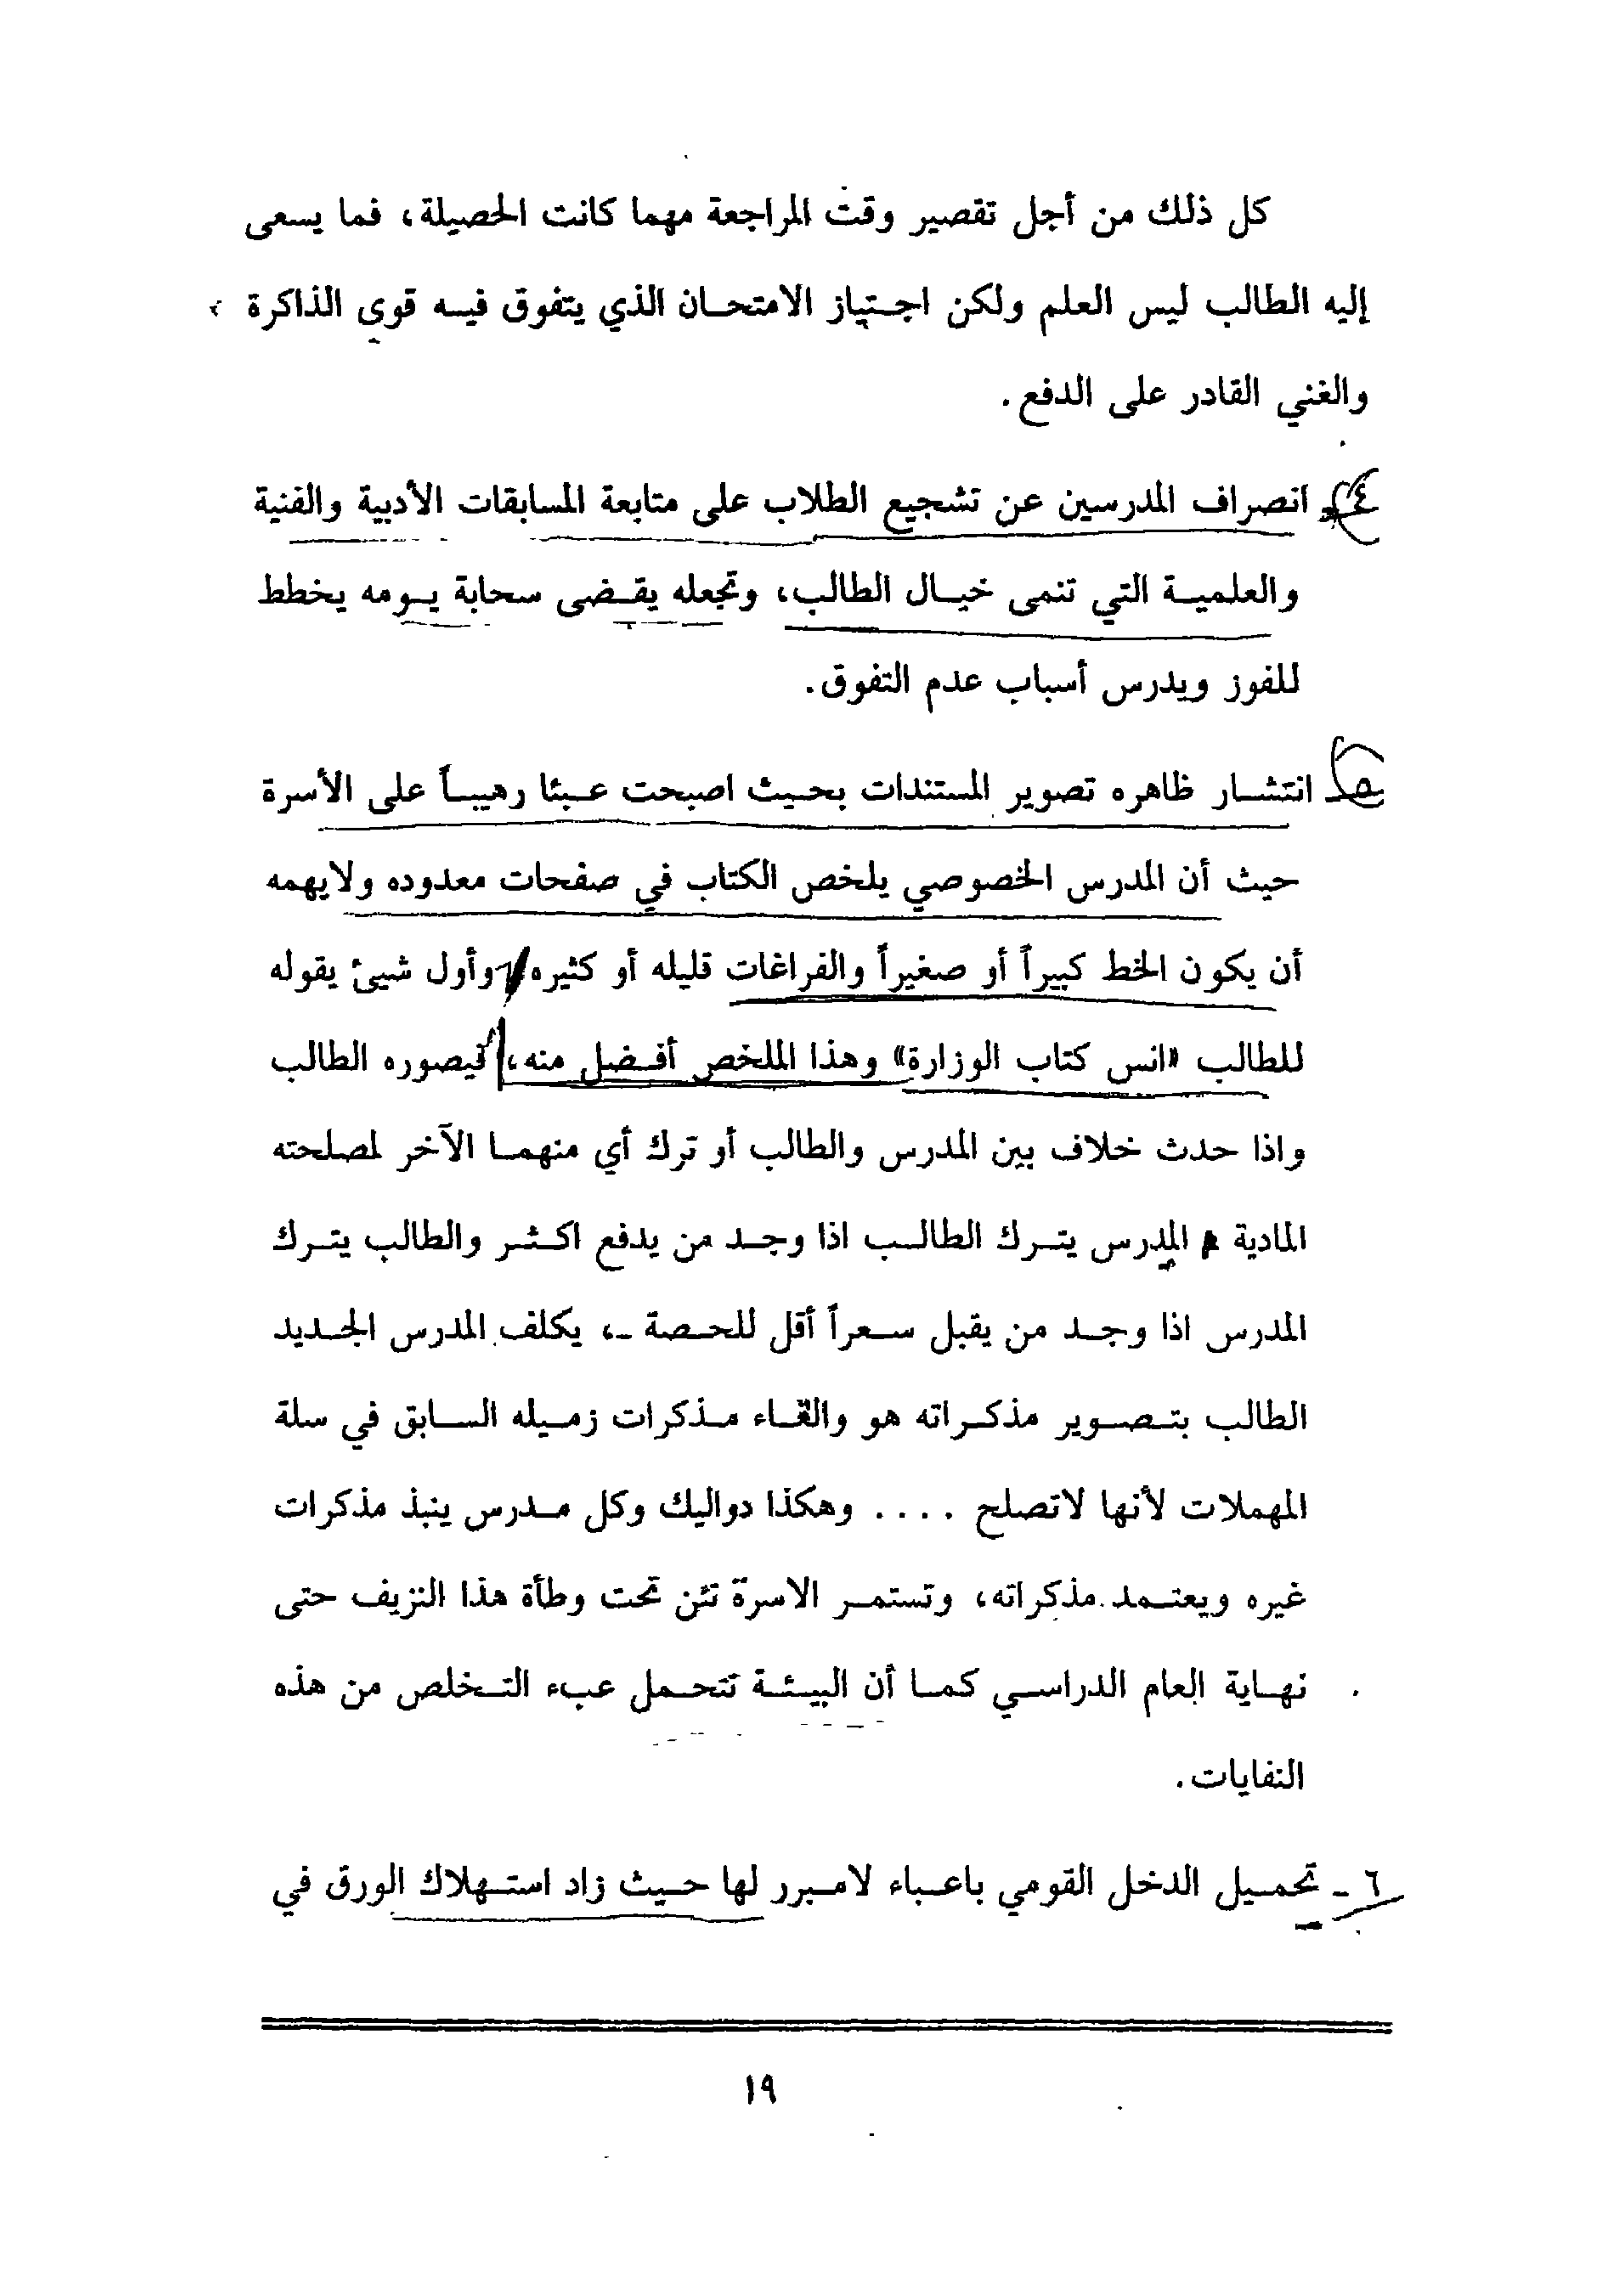 كل ذلك من أجل تقصير وقت المراجعة مهما كانت الحصيلة، فما يسعى
إليه الطالب ليس العلم ولكن اجتياز الامتحان الذي يتفوق فيه قوى الذاكرة
والغني القادر على الدفع.
٤ـ انصراف المدرسين عن تشجيع الطلاب على متابعة المسابقات الأدبية والفنية
والعلمية التي تنمى خيال الطالب، وتجعله يقضى سحابة يومه يخطط
للفوز ويدرس أسباب عدم التفوق.
٥ـ انتشار ظاهره تصوير المستندات بحيث اصبحت عبئا رهيباً على الأسرة
حيث أن المدرس الخصوصي يلخص الكتاب في صفحات معدوده ولايهمه
أن يكون الخط كبيراً أو صغيراً والفراغات قليله أو كثيره وأول شيئ يقوله
للطالب «انس كتاب الوزارة» وهذا الملخص أفضل منه، فيصوره الطالب
واذا حدث خلاف بين المدرس والطالب أو ترك أي منهما الآخر لمصلحته
المادية المدرس يترك الطالب اذا وجد من يدفع اكثر والطالب يترك
المدرس اذا وجد من يقبل سعراً أقل للحصة ـ، يكلف المدرس الجديد
الطالب بتصوير مذكراته هو والقاء مذكرات زميله السابق في سلة
المهملات لأنها لاتصلح .... وهكذا دواليك وكل مدرس ينبذ مذكرات
غيره ويعتمد مذكراته، وتستمر الاسرة تئن تحت وطأة هذا النزيف حتى
نهاية العام الدراسي كما أن البيئة تتحمل عبء التخلص من هذه
النفايات.
٦ـ تحميل الدخل القومي باعباء لامبرر لها حيث زاد استهلاك الورق في
١٩